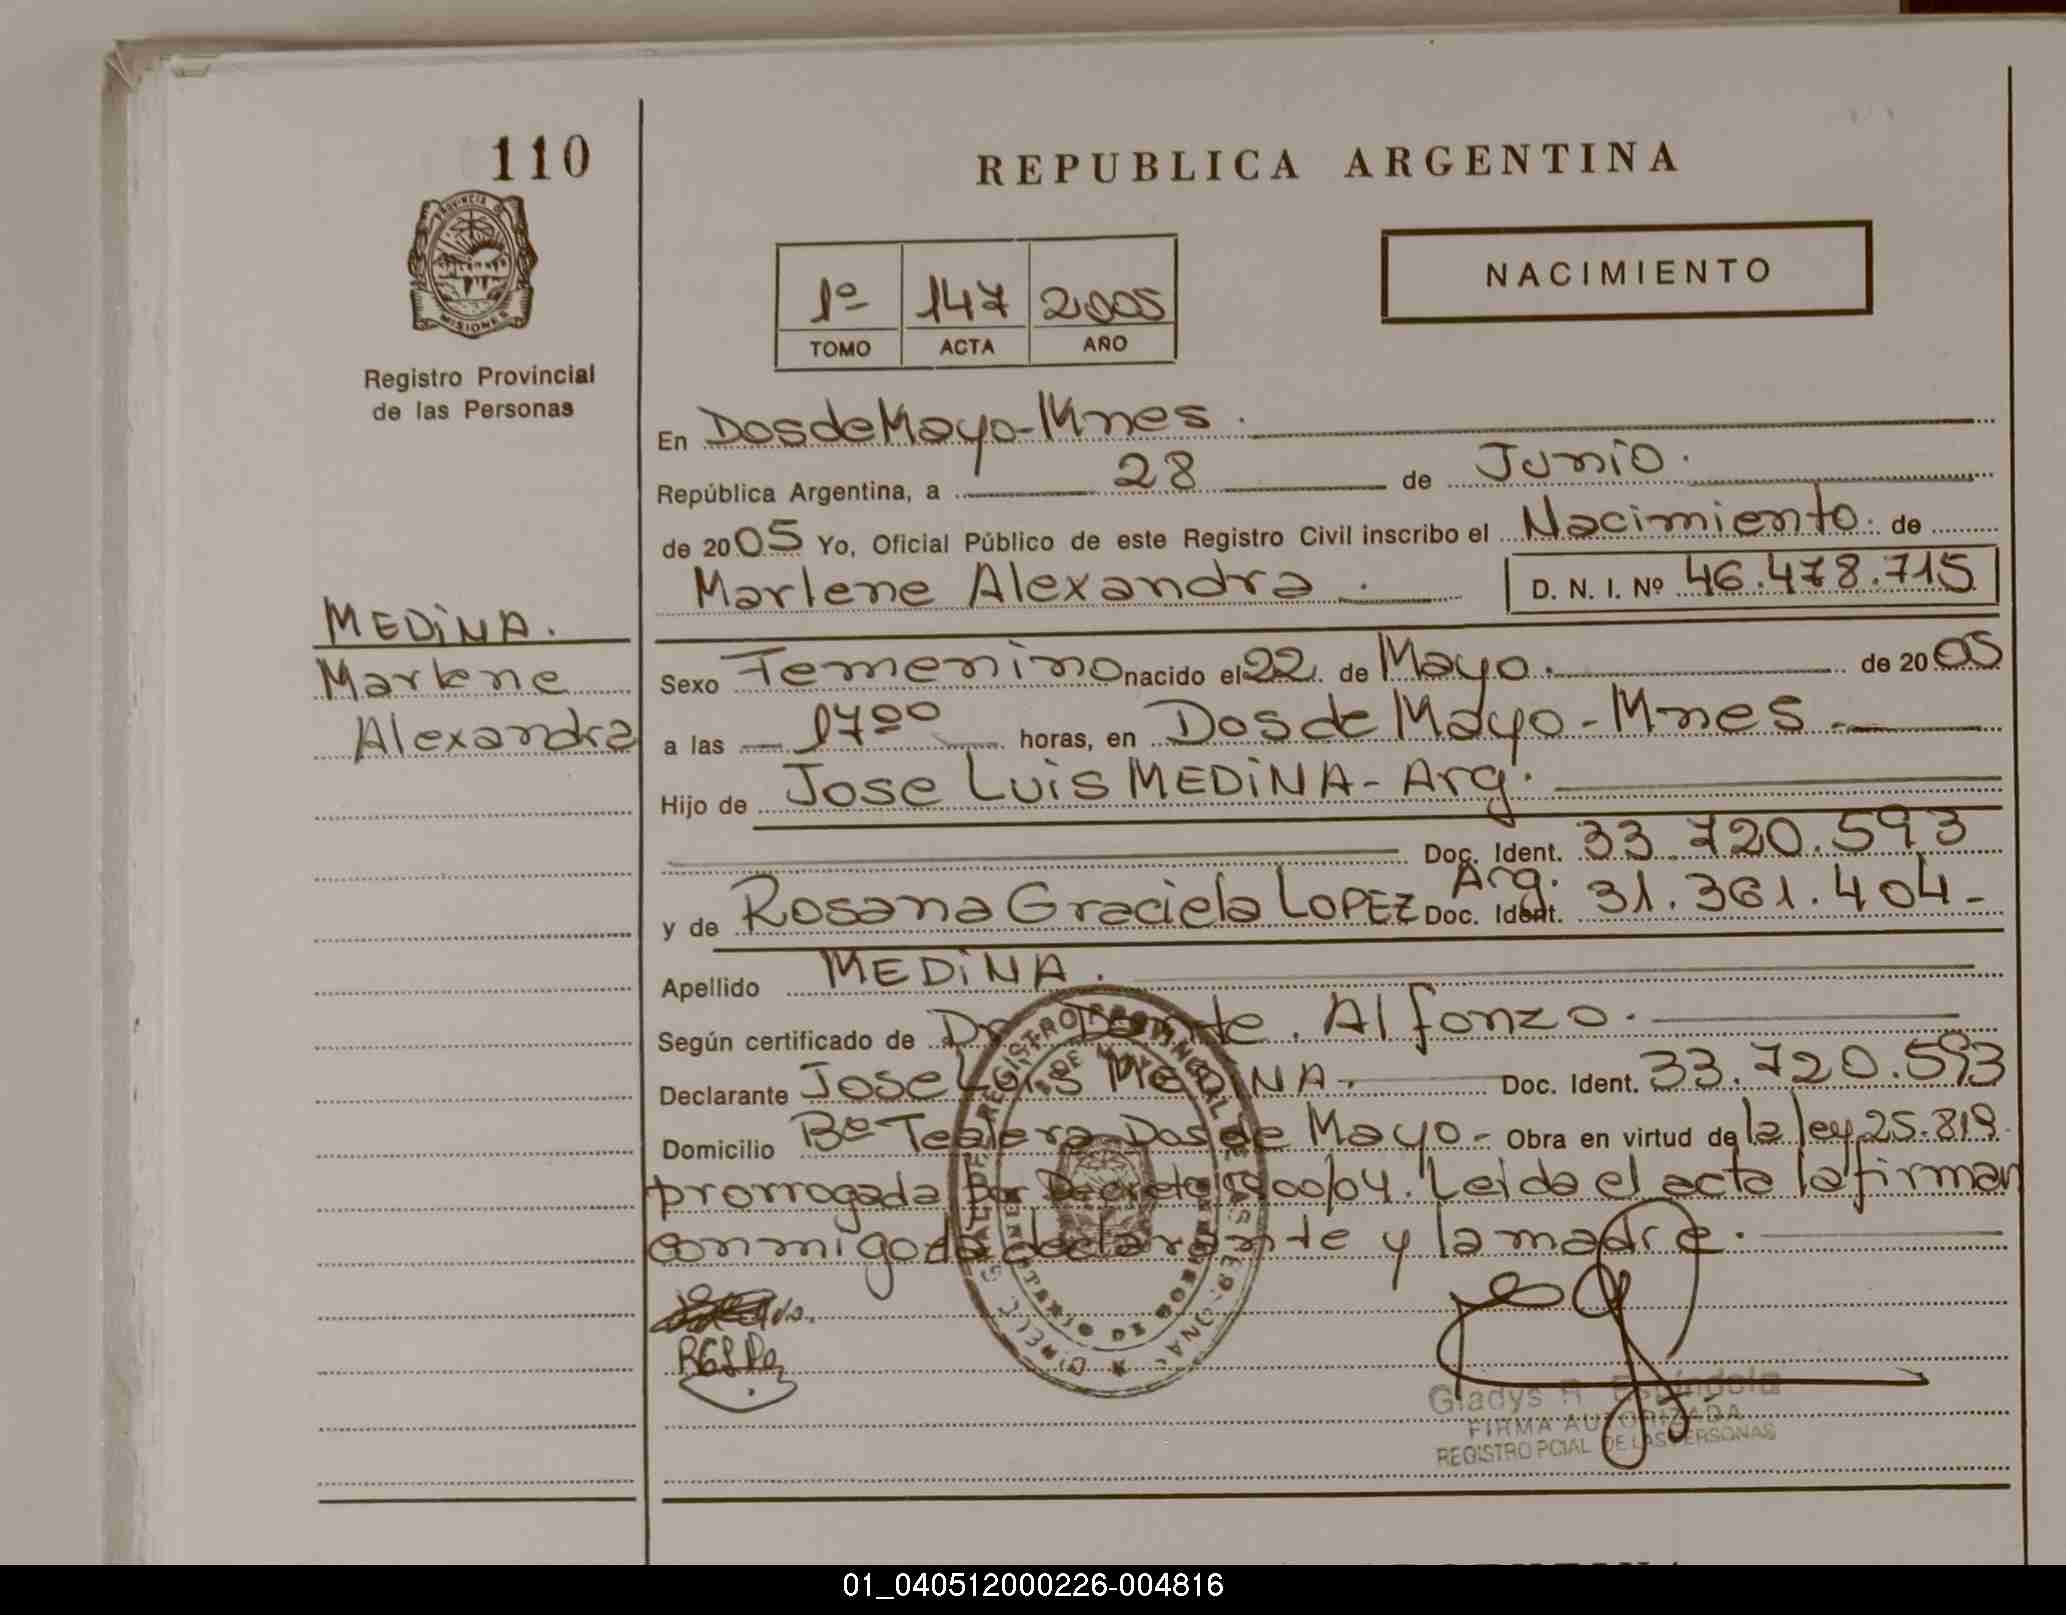 110
REPUBLICA ARGENTINA
PROVINCIA DE
MISIONES
Registro Provincial
de las Personas
NACIMIENTO
1º 147 2005
TOMO ACTA AÑO
En Dos de Mayo - Mnes.
República Argentina, a 28 de Junio.
de 2005 Yo, Oficial Público de este Registro Civil inscribo el Nacimiento. de
Marlene Alexandra. D. N. I. Nº 46.478.715
MEDiNA.
Marlene
Alexandra
Sexo Femenino nacido el 22 de Mayo. de 2005
a las 17⁰⁰ horas, en Dos de Mayo - Mnes.
Hijo de Jose Luis MEDiNA - Arg.
Doc. Ident. 33.720.593
y de Rosana Graciela LOPEZ Arg. Doc. Ident. 31.361.404-
Apellido MEDiNA.
Según certificado de Alfonzo.
Declarante Jose Luis MEDiNA. Doc. Ident. 33.720.593
Domicilio Bº Tealera Dos de Mayo - Obra en virtud de la ley 25.819
prorrogada por Decreto /04. Leida el acta la firman
conmigo declarante y la madre.
Gladys R. Espíndola
FIRMA AUTORIZADA
REGISTRO PCIAL DE LAS PERSONAS
01_040512000226-004816